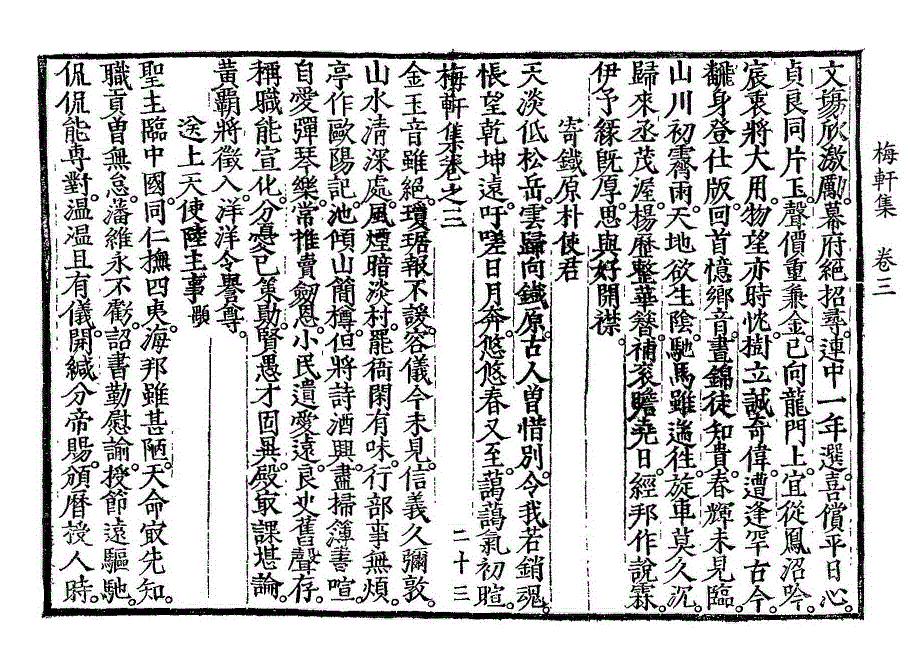 梅軒集　卷三
文場欣激勵幕府絕招尋連中一年選喜償平日心
貞良同片玉聲價重兼金已向龍門上宜從鳳沼吟
宸衷將大用物望亦時忱樹立誠奇偉遭逢罕古今
翻身登仕版回首憶鄉音晝錦徒知貴春輝未見臨
山川初霽雨天地欲生陰馳馬雖遄往旋車莫久沉
歸來丞茂渥楊歷整華簪補衮瞻堯日經邦作說霖
伊予緣旣厚思與好開襟
寄鐵原朴使君
天淡低松岳雲歸向鐵原古人曾惜別今我若銷魂
悵望乾坤遠吁嗟日月奔悠悠春又至藹藹氣初暄
梅軒集卷之三　二十三
金玉音雖絕瓊琚報不諼容儀今未見信義久彌敦
山水淸深處風煙暗淡村罷衙閑有味行部事無煩
亭作歐陽記池傾山簡樽但將詩酒興盡掃簿書喧
自愛彈琴樂常推賣劒恩小民遺愛遠良史舊聲存
稱職能宣化分憂已策勛賢愚才固異殿最課堪論
黃霸將徵入洋洋令譽尊
送上天使陸主事顒
聖主臨中國同仁撫四夷海邦雖甚陋天命寂先知
職貢曾無怠藩維永不虧詔書勤慰諭授節遠驅馳
侃侃能專對溫溫且有儀開緘分帝賜頒曆授人時